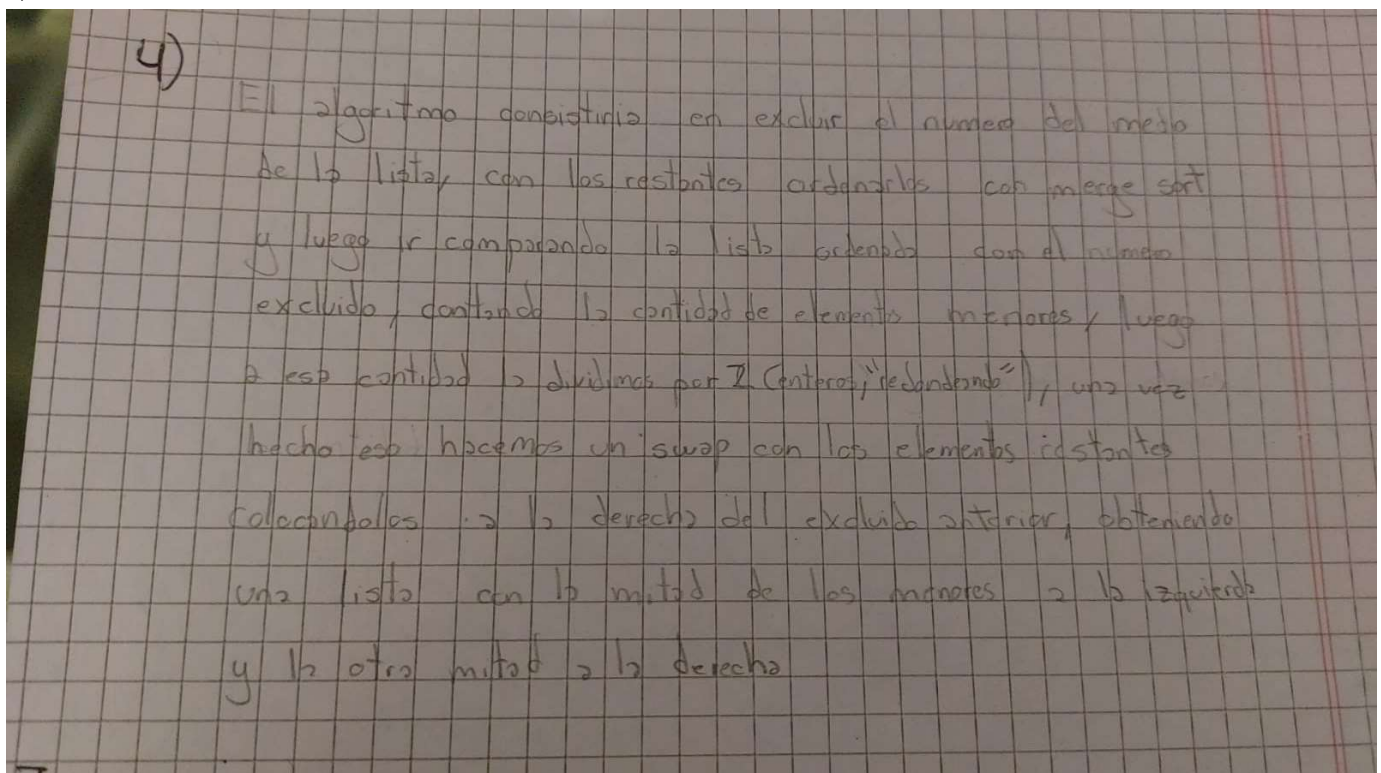 4)
El algoritmo consistiria en excluir el numero del medio
de la lista, con los restantes ordenarlos con merge sort
y luego ir comparando la lista ordenada con el numero
excluido, contando la cantidad de elementos menores, luego
a esa cantidad la dividimos por 2 (enteros, "redondeando"), una vez
hecho eso hacemos un swap con los elementos restantes
colocandolos a la derecha del excluido anterior, obteniendo
una lista con la mitad de los menores a la izquierda
y la otra mitad a la derecha